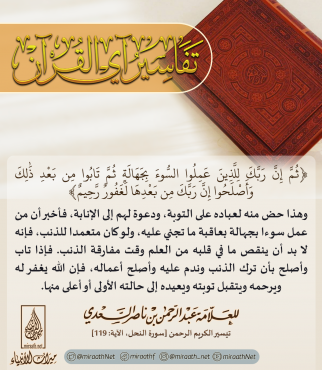 تفاسير آي القرآن
﴿ثُمَّ إِنَّ رَبَّكَ لِلَّذِينَ عَمِلُوا السُّوءَ بِجَهَالَةٍ ثُمَّ تَابُوا مِن بَعْدِ ذَٰلِكَ
وَأَصْلَحُوا إِنَّ رَبَّكَ مِن بَعْدِهَا لَغَفُورٌ رَّحِيمٌ﴾
وهذا حض منه لعباده على التوبة، ودعوة لهم إلى الإنابة، فأخبر أن من
عمل سوءا بجهالة بعاقبة ما تجني عليه، ولو كان متعمدا للذنب، فإنه
لا بد أن ينقص ما في قلبه من العلم وقت مفارقة الذنب. فإذا تاب
وأصلح بأن ترك الذنب وندم عليه وأصلح أعماله، فإن الله يغفر له
ويرحمه ويتقبل توبته ويعيده إلى حالته الأولى أو أعلى منها.
للعلامة عبد الرحمن بن ناصر السعدي
تيسير الكريم الرحمن [سورة النحل، الآية: 119]
ميراث الأنبياء
@miraathNet @miraathf @miraath_net miraathNet